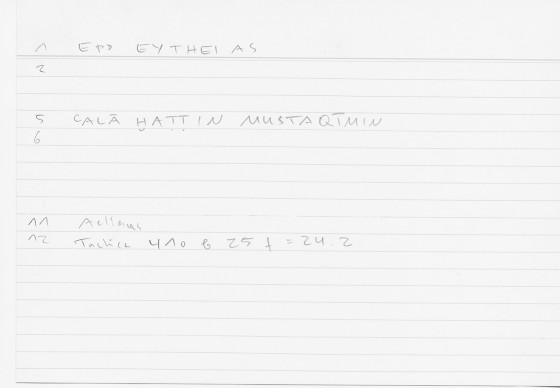 1 EPD EYTHEIAS
2
5 ʿALĀ ḪAṬṬIN MUSTAQĪMIN
6
11 Aelianus
12 Tactica 410 b 25 f = 24.2